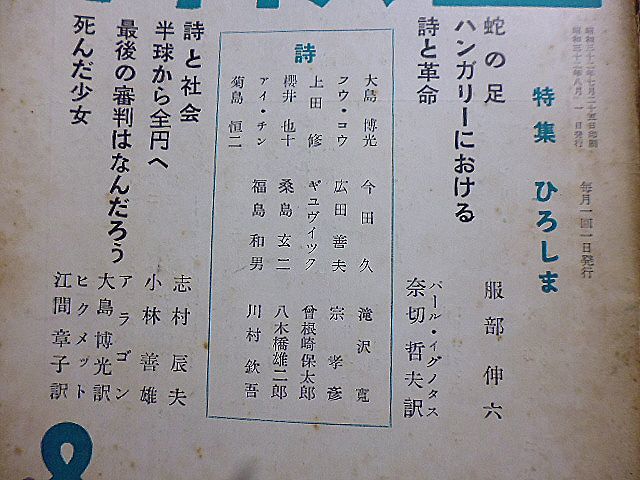 昭和三十二年七月二十五日印刷
昭和三十二年八月一日発行
毎月一回一日発行
特集 ひろしま
蛇の足 服部伸六
ハンガリーにおける
詩と革命
パール・イグノタス
奈切哲夫訳
詩
大島博光 今田久 滝沢寛
フウ・コウ 広田善夫 宗孝彦
上田修 ギユヴイツク 曾根崎保太郎
櫻井也十 桑島玄二 八木橋雄二郎
アイ・チン 福島和男 川村欽吾
菊島恒二
詩と社会 志村辰夫
半球から全円へ 小林善雄
最後の審判はなんだろう アラゴン
大島博光訳
死んだ少女 ヒクメット
江間章子訳
8